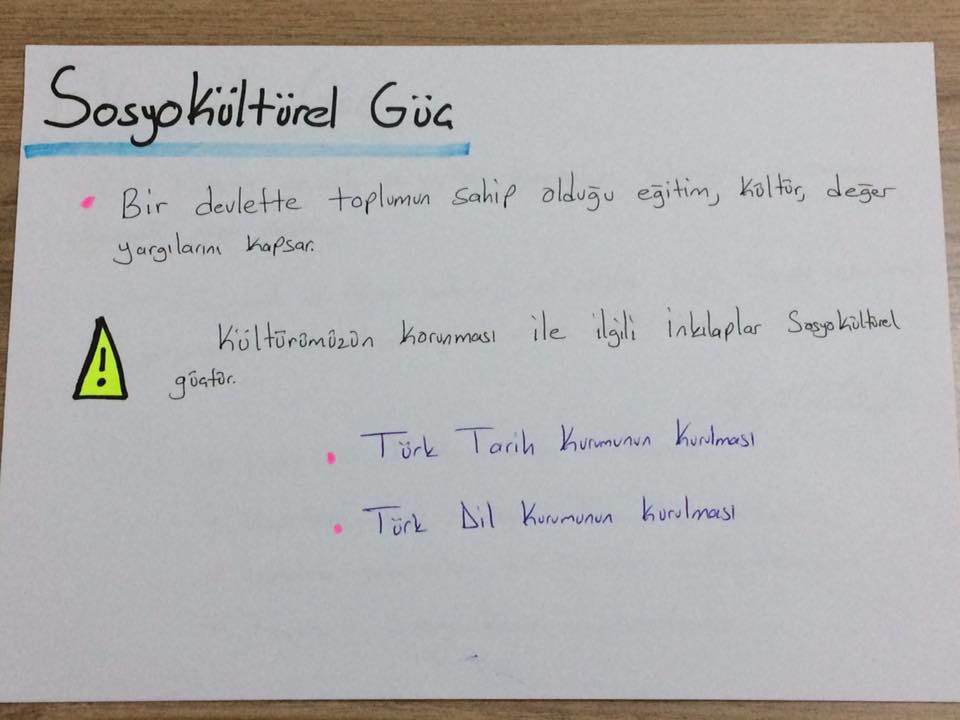 Sosyokültürel Güç
Bir devlette toplumun sahip olduğu eğitim, kültür, değer
yargılarını kapsar.
Kültürümüzün korunması ile ilgili inkılaplar Sosyokültürel
güçtür.
Türk Tarih Kurumunun Kurulması
Türk Dil Kurumunun kurulması